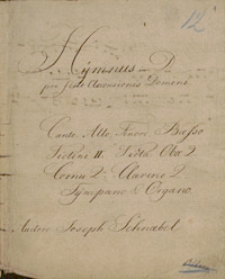 12
Hymnus in D
pro Festo Ascensionis Domini
Canto Alto Tenore Basso
Violino II. Viola Oboe 2
Cornu 2 Clarino 2
Tympano & Organo.
Joseph Schnabel